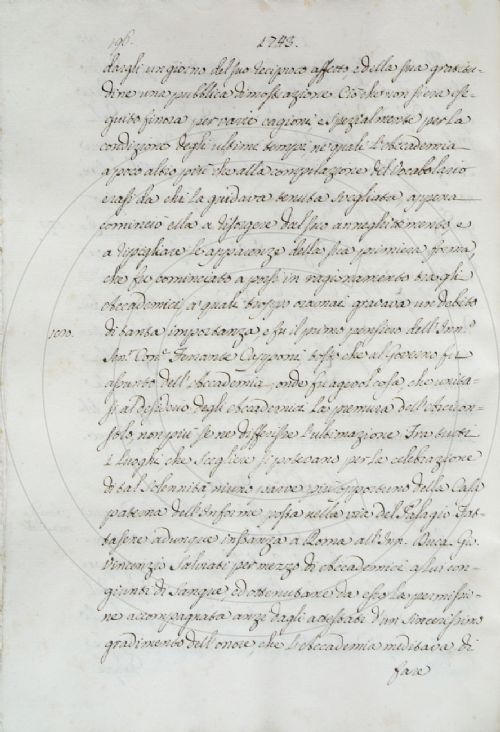 196. 1743.
dargli un giorno del suo reciproco affetto, e della sua gratitu-
dine una pubblica dimostrazione. Ciò che non si era ese-
guito finora per varie cagioni, e spezialmente per la
condizione degli ultimi tempi, ne' quali l'Accademia
a poco altro più che alla compilazione del Vocabolario
erasi da chi la guidava tenuta svegliata, appena
cominciò ella a risorgere dal suo anneghittimento, e
a ripigliare le apparenze della sua primiera forma,
che fu cominciato a porsi in ragionamento tra gli
Accademici, a' quali troppo oramai gravava un debito
1010. di tanta importanza e fu il primo pensiero dell'
Sen.r Ferrante Capponi tosto che al Governo fu
assunto dell'Accademia, onde fu agevol cosa, che unita-
si al desiderio degli Accademici la premura dell'Arcicon-
solo, non più se ne differisse l'ultimazione. Fra tutti
i Luoghi che scegliere si potevano per la celebrazione
di tal solennità niuno parve più opportuno della Casa
paterna dell'Infarine posta nella via del Palagio. Fat-
tasene adunque instanza a Roma all' Duca Gio.
Vincenzio Salviati per mezzo di Accademici a lui con-
giunti di sangue, ed ottenutane da esso la permissio-
ne accompagnata anzi dagli attestati d'un sincerissimo
gradimento dell'onore, che l'Accademia meditava di
fare